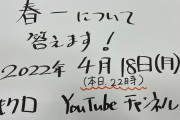 春一について
答えます!
2022年 4月18日(月)
(本日、22時)
クロ YouTube チャンネル